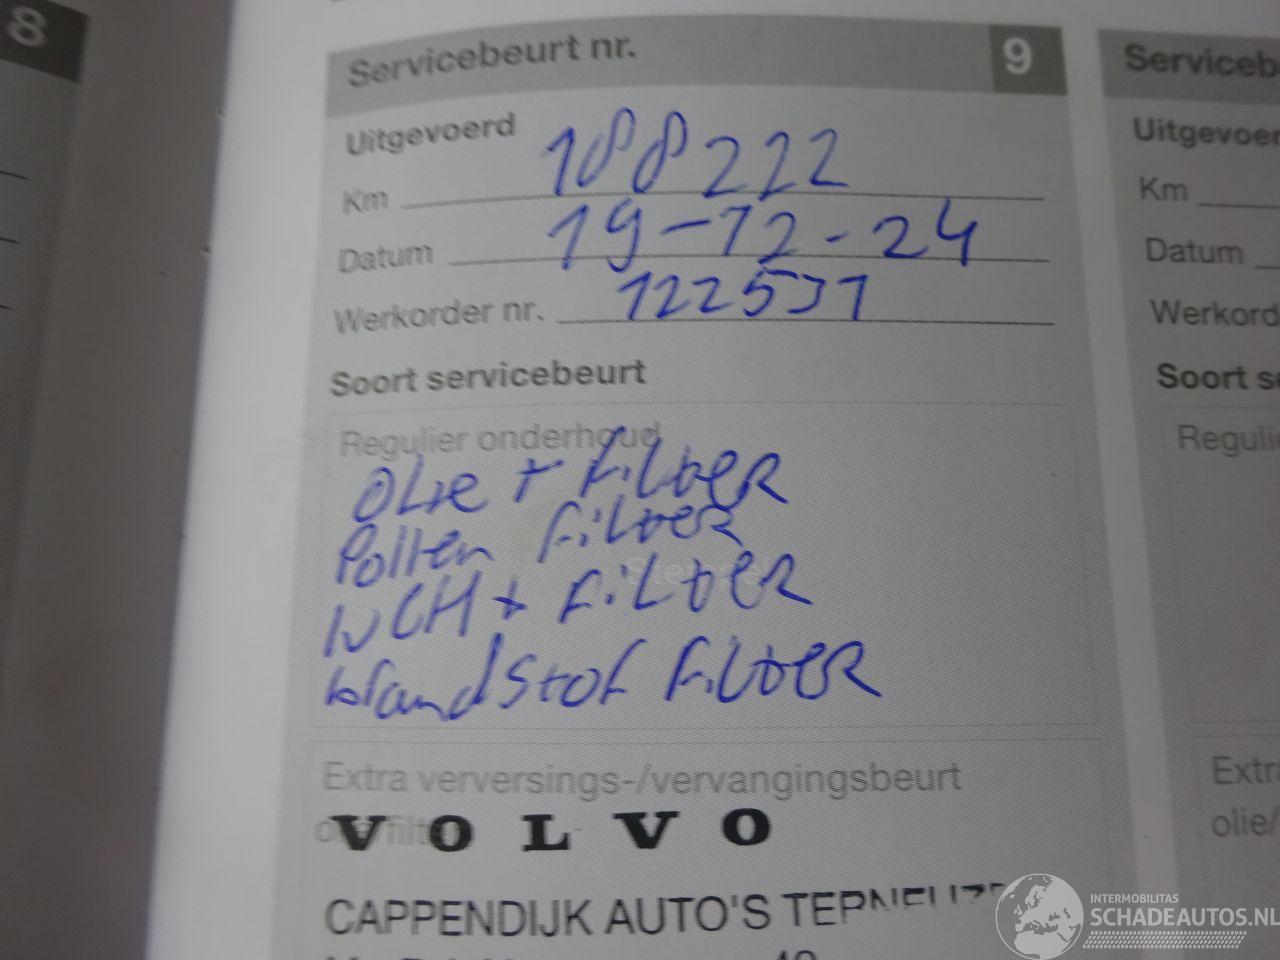 8
Servicebeurt nr. 9
Uitgevoerd
Km 188222
Datum 19-12-24
Werkorder nr. 122531
Soort servicebeurt
Regulier onderhoud
OLie + FiLter
Pollen FiLter
+ FiLter
brandstof FiLter
Stempel
Extra verversings-/vervangingsbeurt
VOLVO
CAPPENDIJK AUTO'S TERNEUZEN
Serviceb
Uitgevoer
Km
Datum
Werkord
Soort se
Regulie
Extra
olie/
INTERMOBILITAS
SCHADEAUTOS.NL